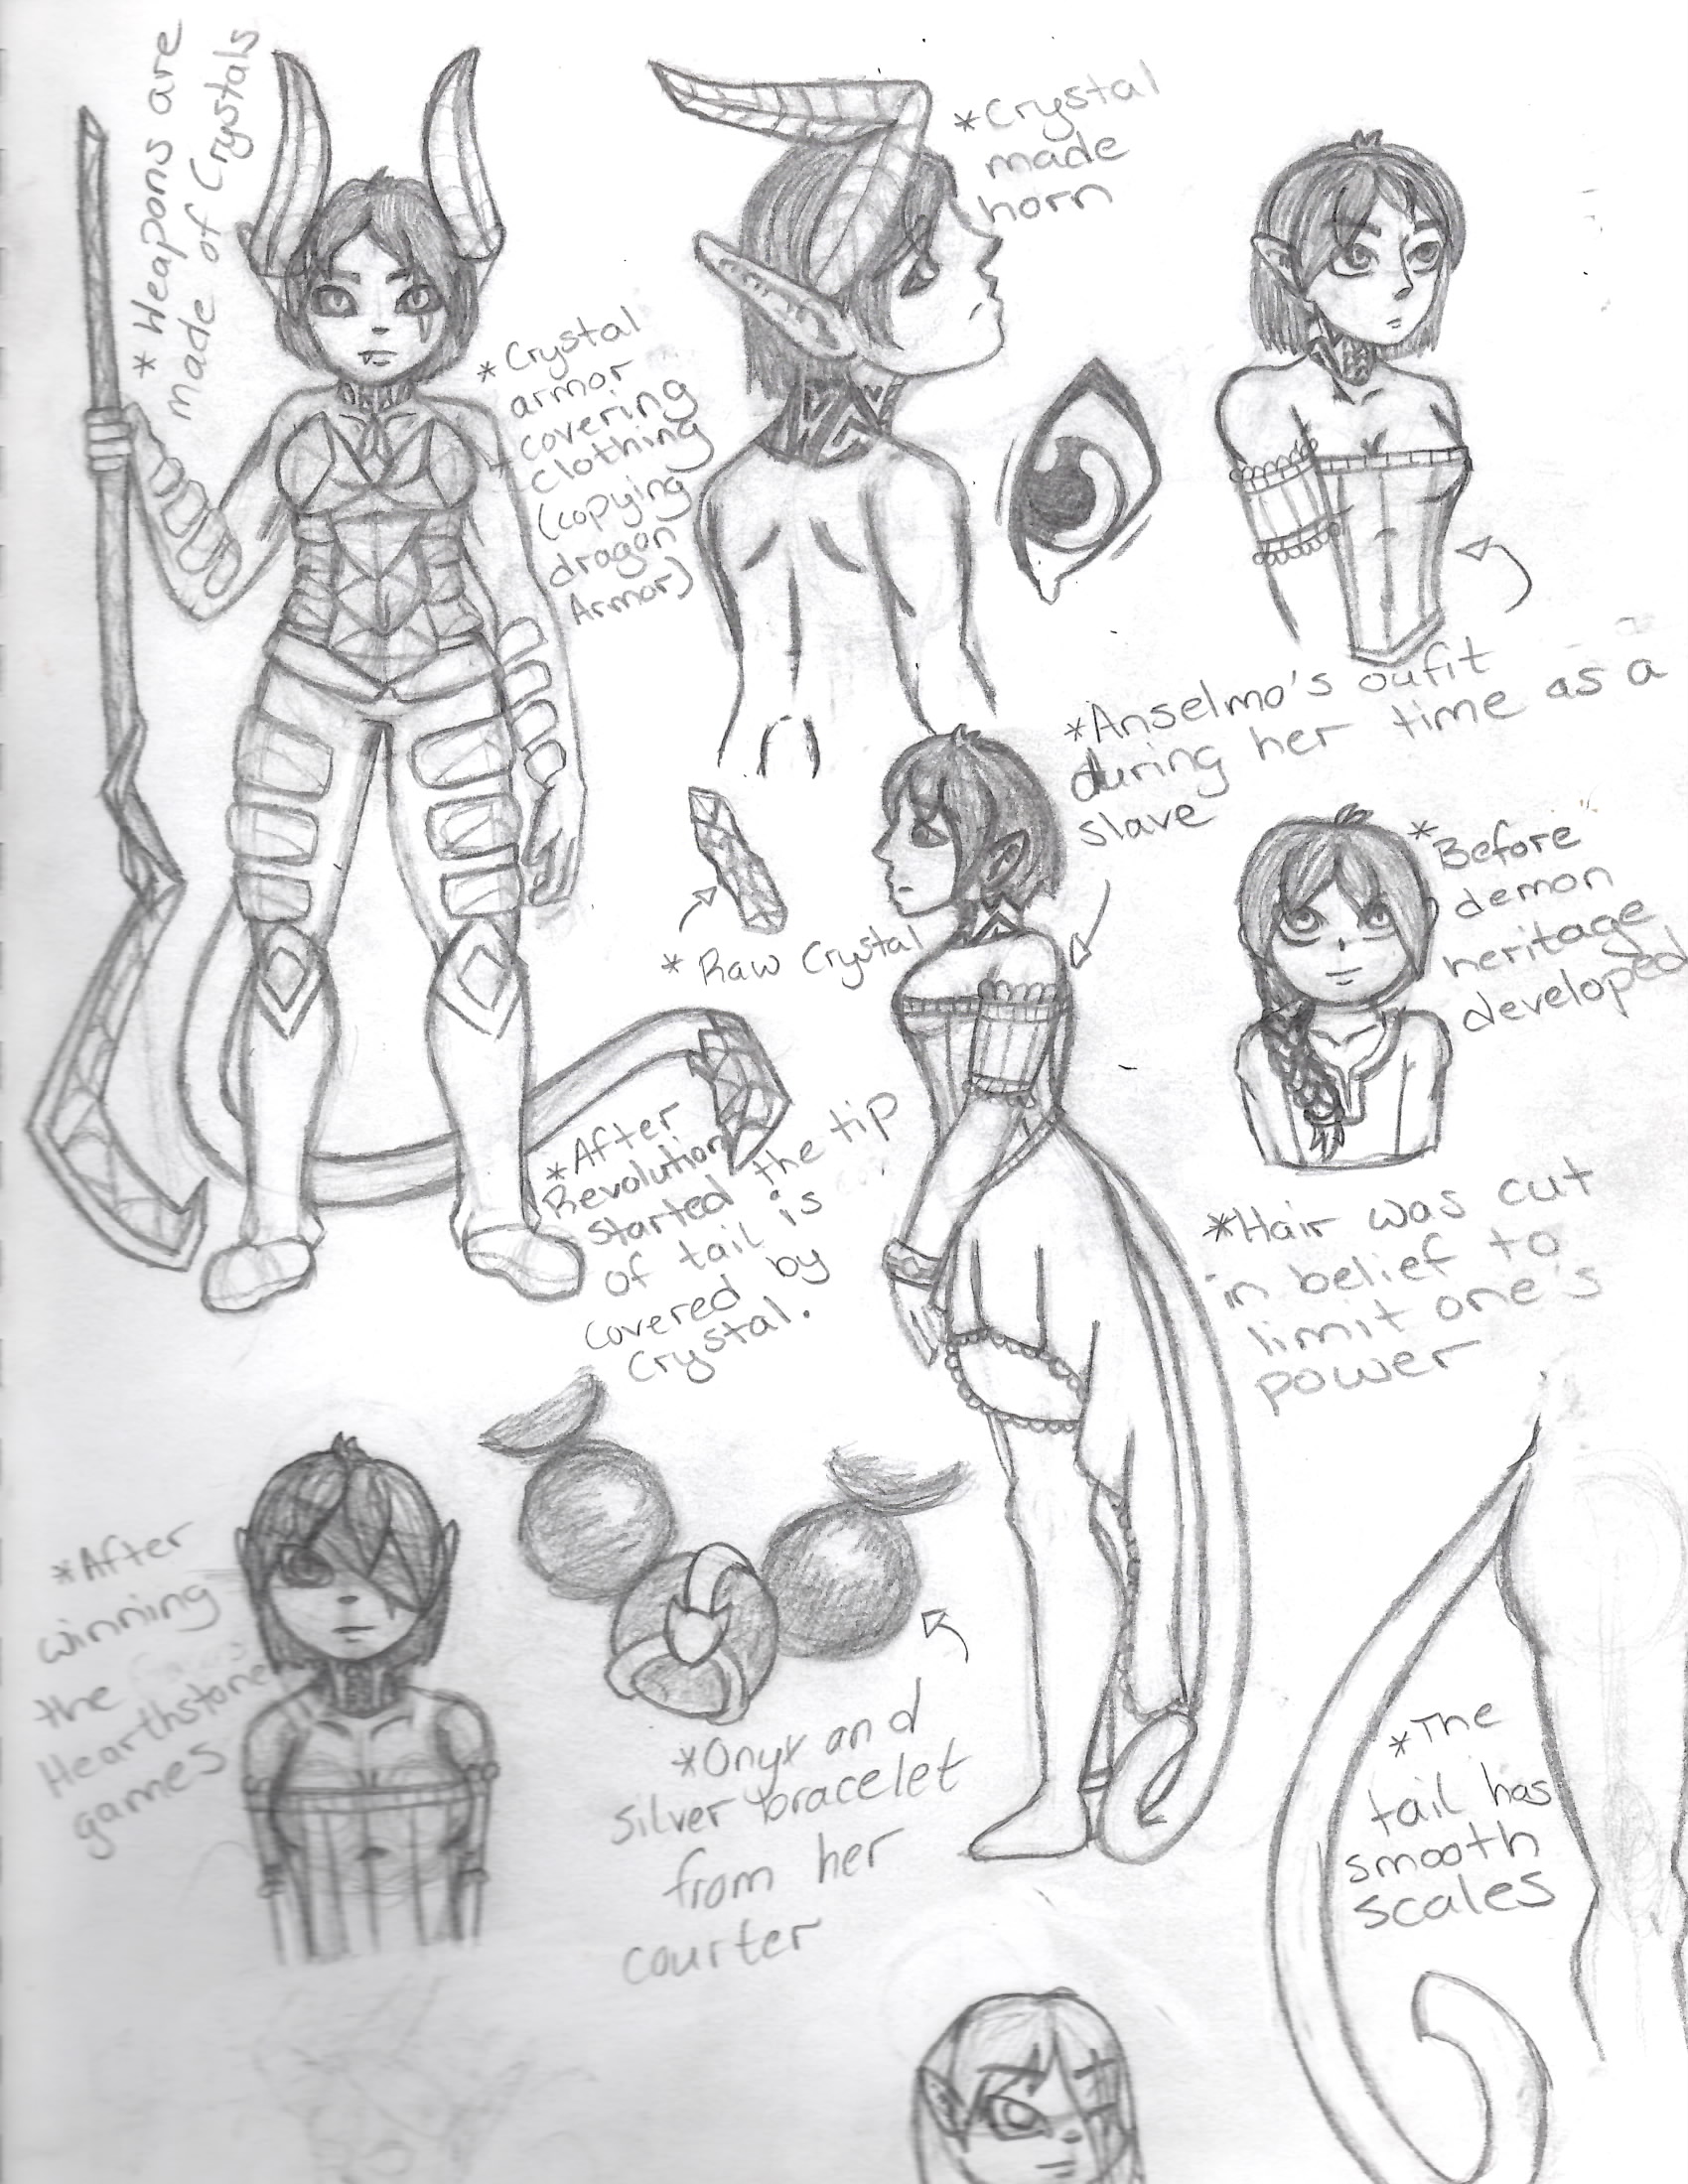 * Weapons are
made of Crystals
* Crystal
made
horn
* Crystal
armor
covering
clothing
(copying
dragon
Armor)
* Anselmo's oufit
during her time as a
slave
* Raw Crystal
* Before
demon
heritage
developed
* After
Revolution
started the tip
of tail is
covered by
Crystal.
* Hair was cut
in belief to
limit one's
power
* After
winning
the
Hearthstone
games
* Onyx and
silver bracelet
from her
courter
* The
tail has
smooth
scales